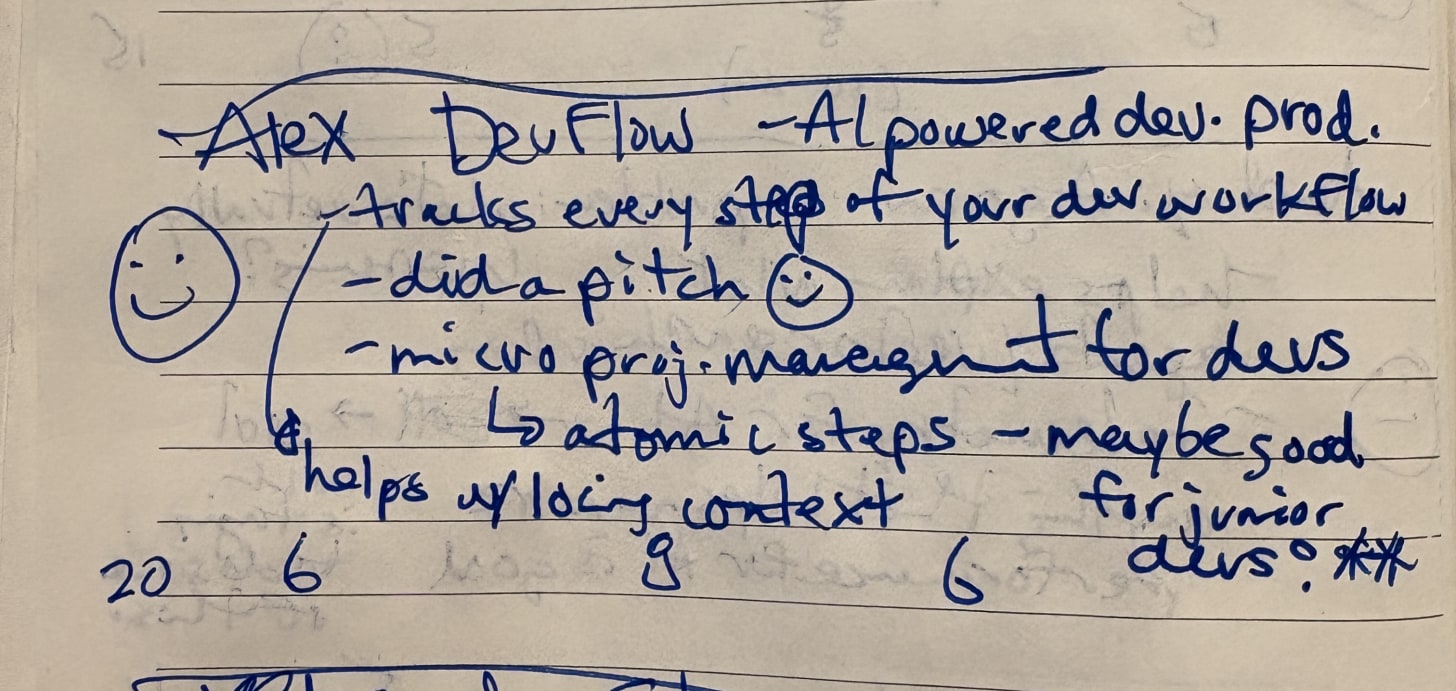 - Alex DevFlow - AI powered dev. prod.
- tracks every step of your dev workflow
- did a pitch
- micro proj. managemnt for devs
↳ atomic steps - maybe good
helps w/ locing context for junior
devs? **
20 6 9 6